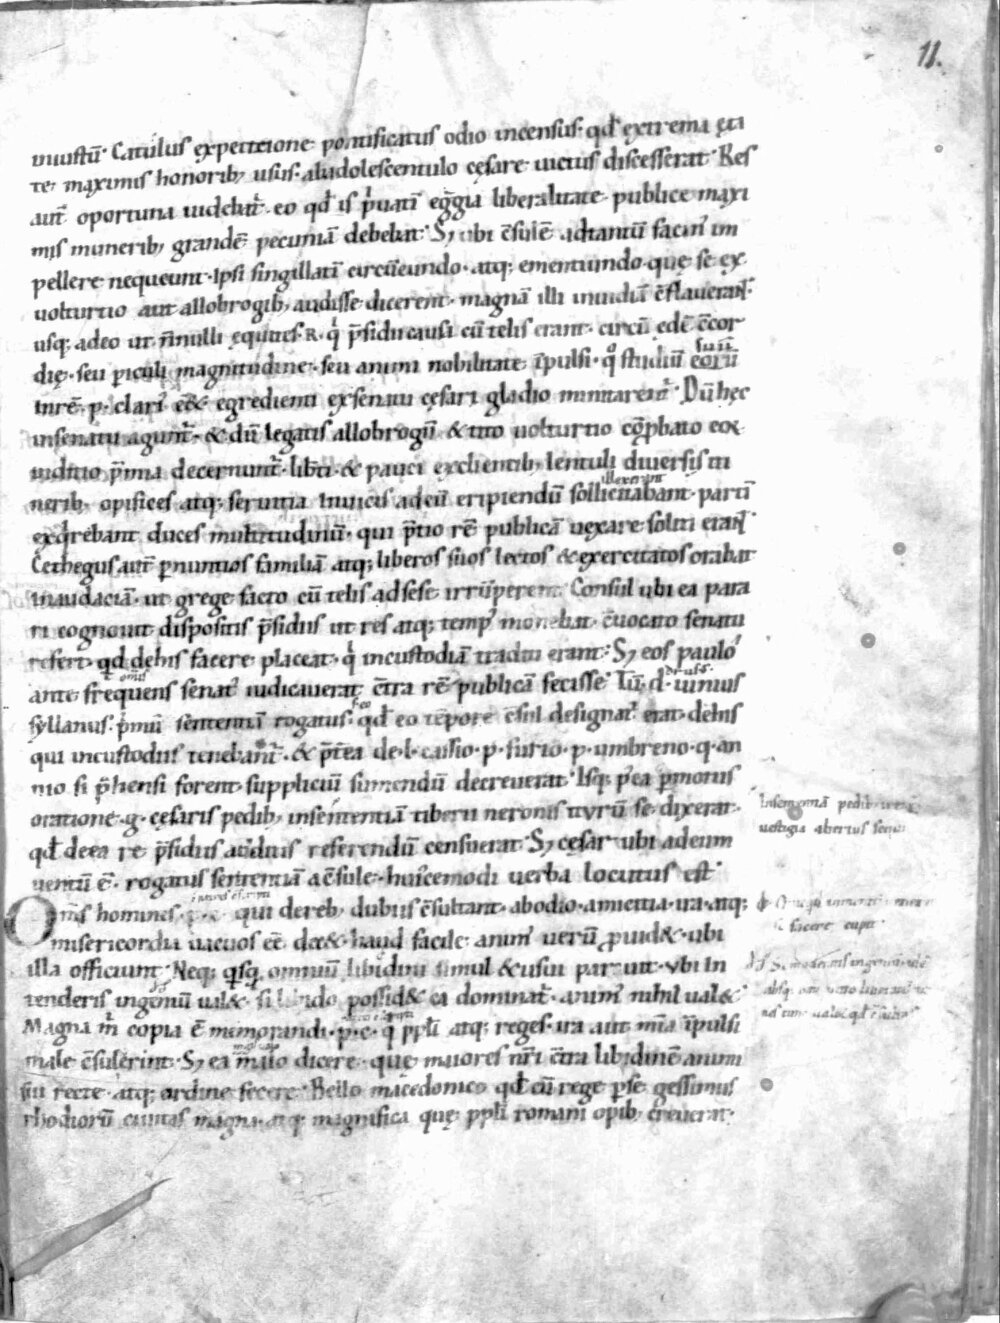 11.
iniustū. Catulus ex petitione pontificatus odio incensus. qđ extrema ęta
te. maximis honorib; usus. ab adolescentulo cęsare uictus discesserat. Res
aut̄ oportuna uidebat̄. eo qđ is p̍uatī eḡgia liberalitate publice maxi
mis munerib; grandē pecuniā debebat. S; ubi c̄sulē ad tantū facin᾽ im
pellere nequeunt. Ipsi singillatī circūeundo. atq; ementiundo. quę se ex
uolturtio aut allobrogib; audisse dicerent. magnā illi inuidiā c̄flauerant.
usq; adeo ut n̄nulli equites .R. q̍ p̄sidii causa cū telis erant. circū ędē c̄cor
dię. seu piculi magnitudine. seu animi nobilitate īpulsi. q° studiū eorū
suū
in rē .p. clari᾽ eēt. egredienti ex senatu cęsari gladio minitarent̄. Dū hęc
in senatu agunt̄. & dū legatis allobrogū & tito uolturtio cōp̄bato eoꝝ
inditio p̄mia decernunt̄. libti. & pauci ex clientib; lentuli diuersis iti
nerib; opifices atq; seruitia in uicis ad eū eripiendū sollicitabant. partī
exq̍rebant duces multitudinū. qui p̄tio rē publicā uexare soliti erant.
Cethegus aut̄ p nuntios familiā atq; liberos suos lectos & exercitatos orabat
in audaciā. ut grege facto cū telis ad sese irrūperent. Consul ubi ea para
ri cognouit dispositis p̄sidiis ut res atq; temp᾽ monebat. c̄uocato senatu
refert. qd de his facere placeat. q̍ in custodiā traditi erant. S; eos paulo
ante frequens senat᾽ iudicauerat c̄tra rē publicā fecisse. Tū .d. iunius
syllanus. p̍mū sententiā rogatus. qđ eo tēpore c̄sul designat᾽ erat. de his
qui in custodiis tenebant̄. & p̄tea de .l. cassio .p. furio .p. umbreno .q. an
nio si p̄hensi forent. suppliciū sumendū decreuerat. Isq; p᾽ea pmotus
oratione .g. cęsaris pedib; in sententiā tiberii neronis iturū se dixerat.
qđ de ea re p̄sidiis additis referendū censuerat. S; cęsar ubi ad eum
uentū ē. rogatus sententiā a c̄sule. huiscemodi uerba locutus est.
Oms̄ homines .p.c. qui de reb; dubiis c̄sultant. ab odio. amicitia. ira. atq;
misericordia uacuos eē. decet. haud facile anim᾽ uerū puidet. ubi
illa officiunt. Neq; qsq omniū libidini simul & usui paruit. Vbi in
tenderis ingeniū ualet. si libido possidet ea dominat̄. anim᾽ nihil ualet.
Magna m̍ copia ē memorandi .p.c. q̍ ppli atq; reges. ira aut mīa īpulsi
male c̄suluerint. S; ea m̄ malo dicere. quę maiores nr̄i c̄tra libidinē animi
sui recte. atq; ordine fecere. Bello macedonico qđ cū rege pse gessimus
rhodiorū ciuitas magna. atq; magnifica quę ppli romani opib; creuerat.
In sententiā pedib;
uestigia
facere